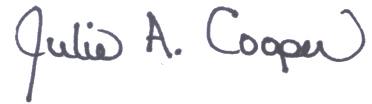 Julie A. Cooper